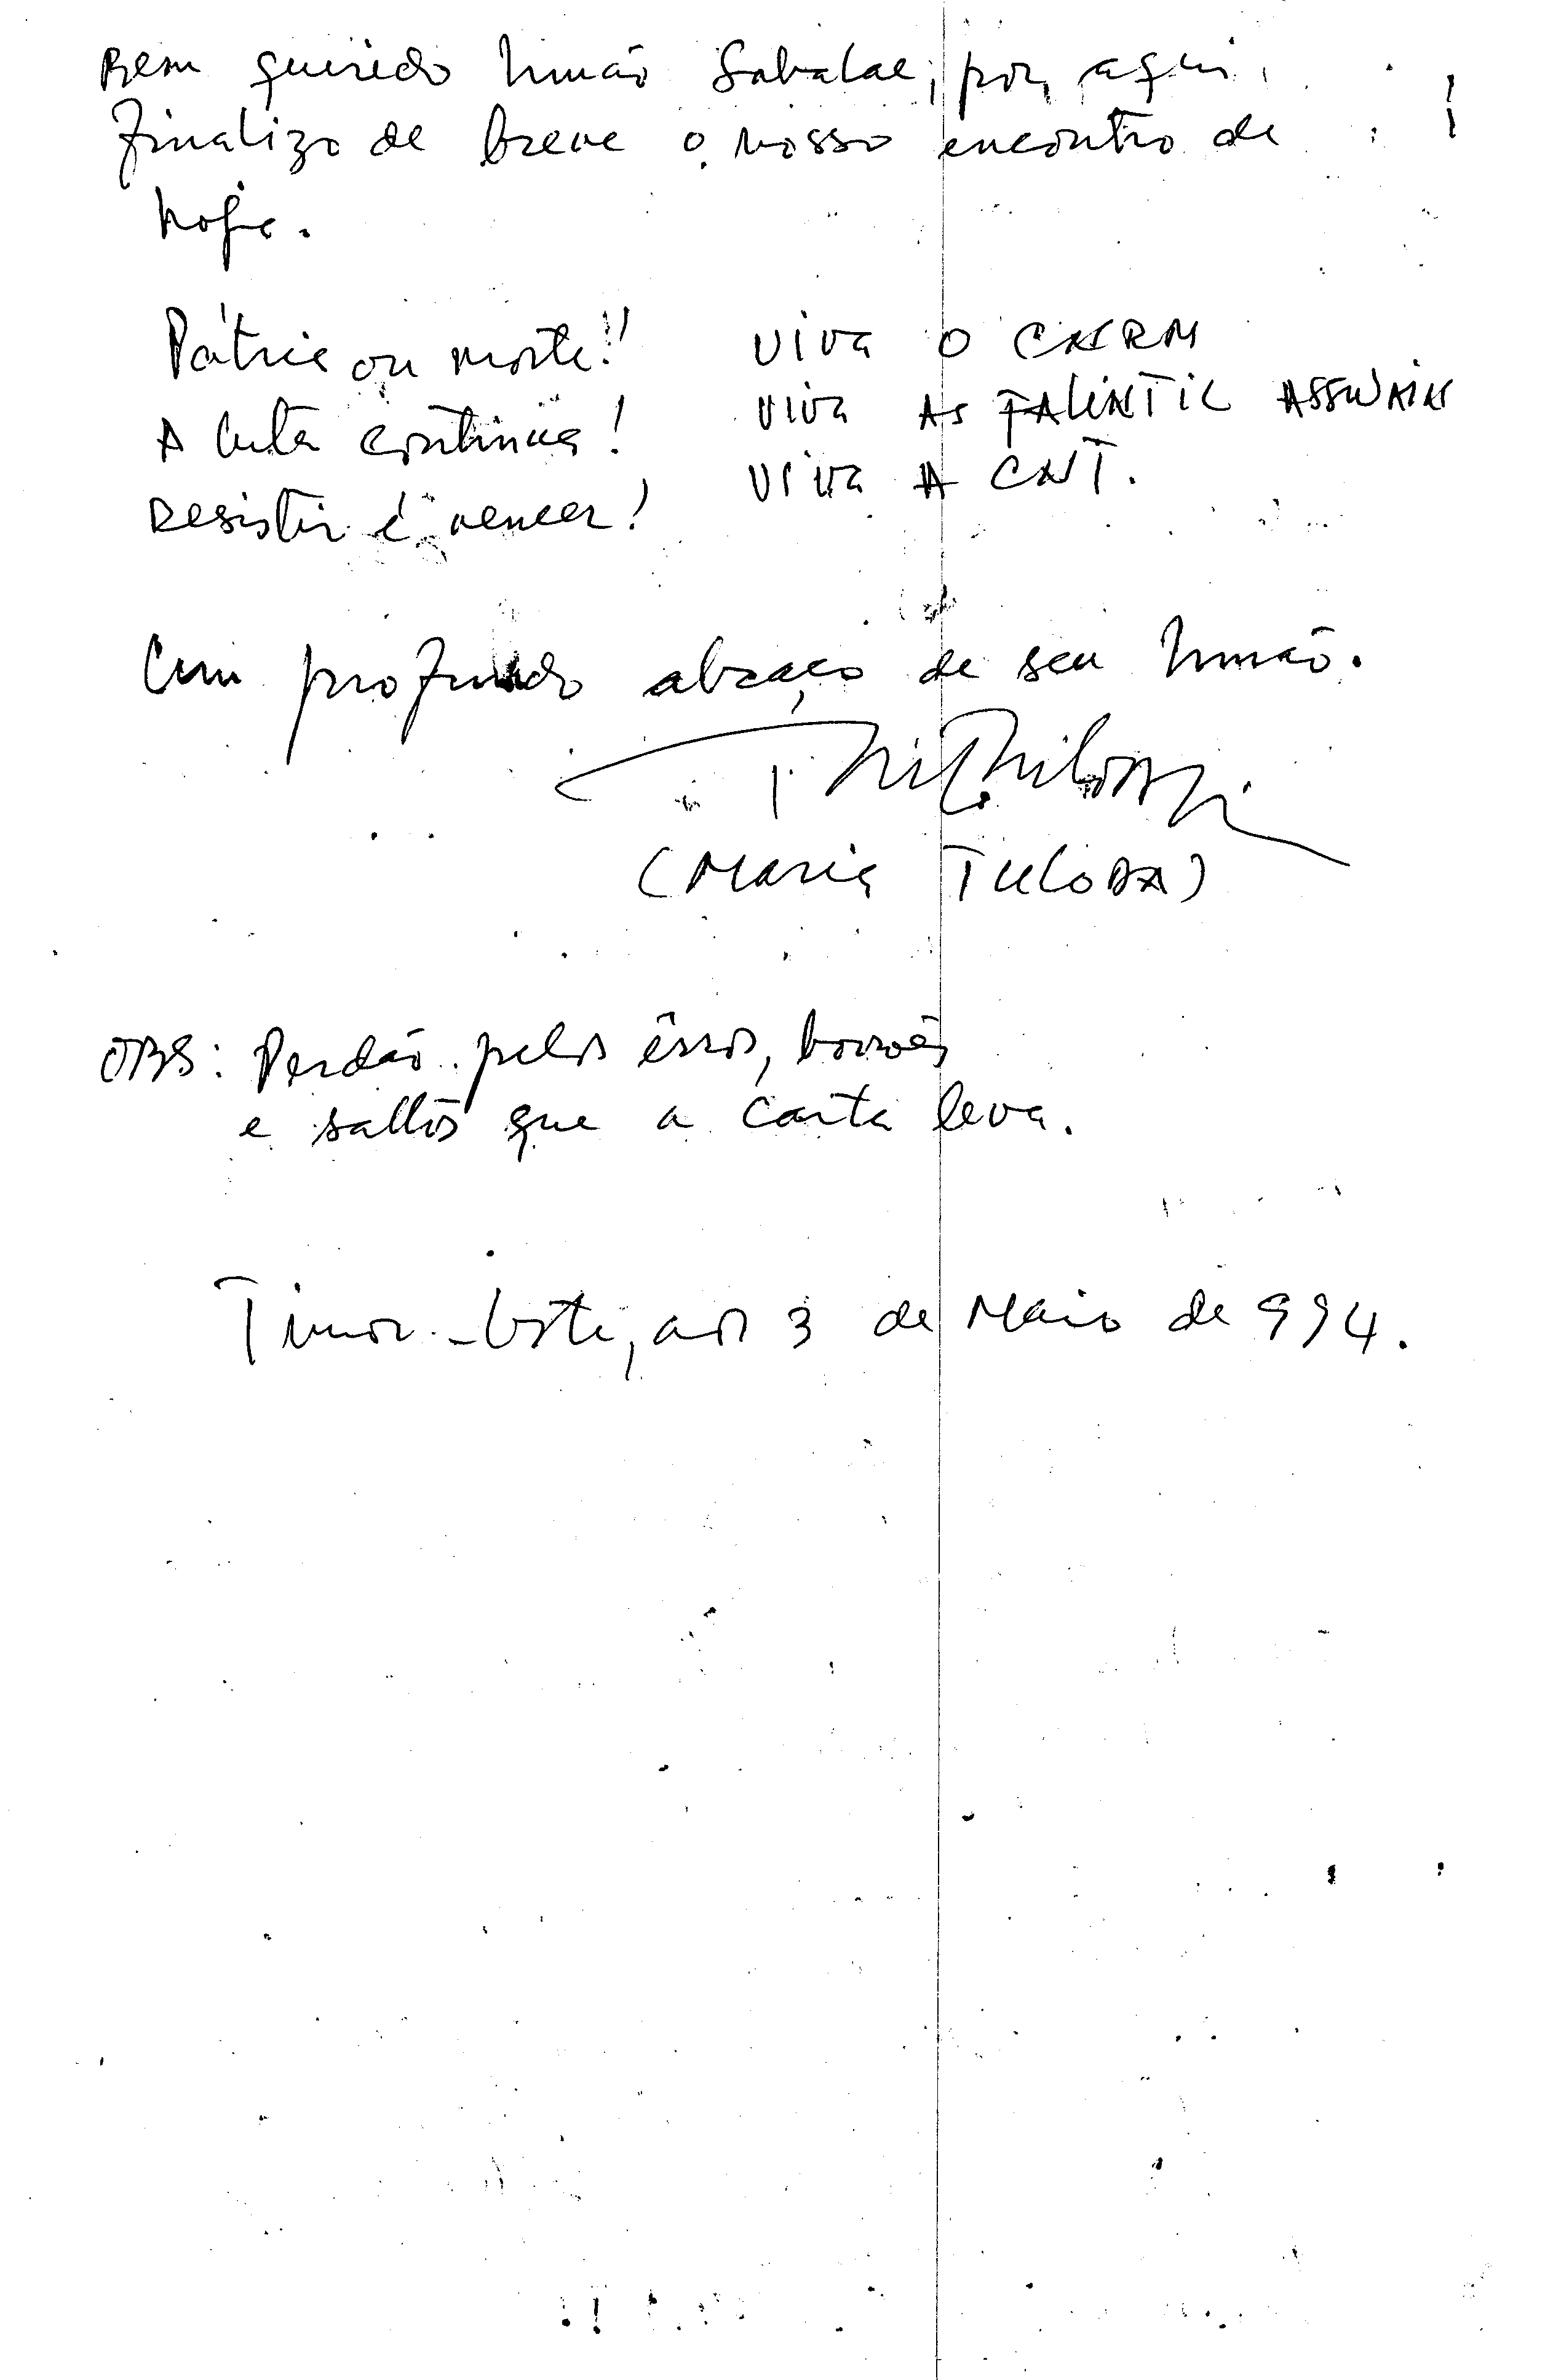 Bem querido Irmão Sabalae, por aqui
finalizo de breve o nosso encontro de
hoje.
Pátria ou morte!! VIVA O CNRM
A luta continua! VIVA AS FALINTIL ASSWAIN
Resistir é vencer! VIVA A CNT.
Um profundo abraço de seu Irmão.
(Maria TULODA)
OBS: Perdão pelos êrros, borrões
e saltos que a carta leva.
Timor-Leste, aos 3 de Maio de 994.